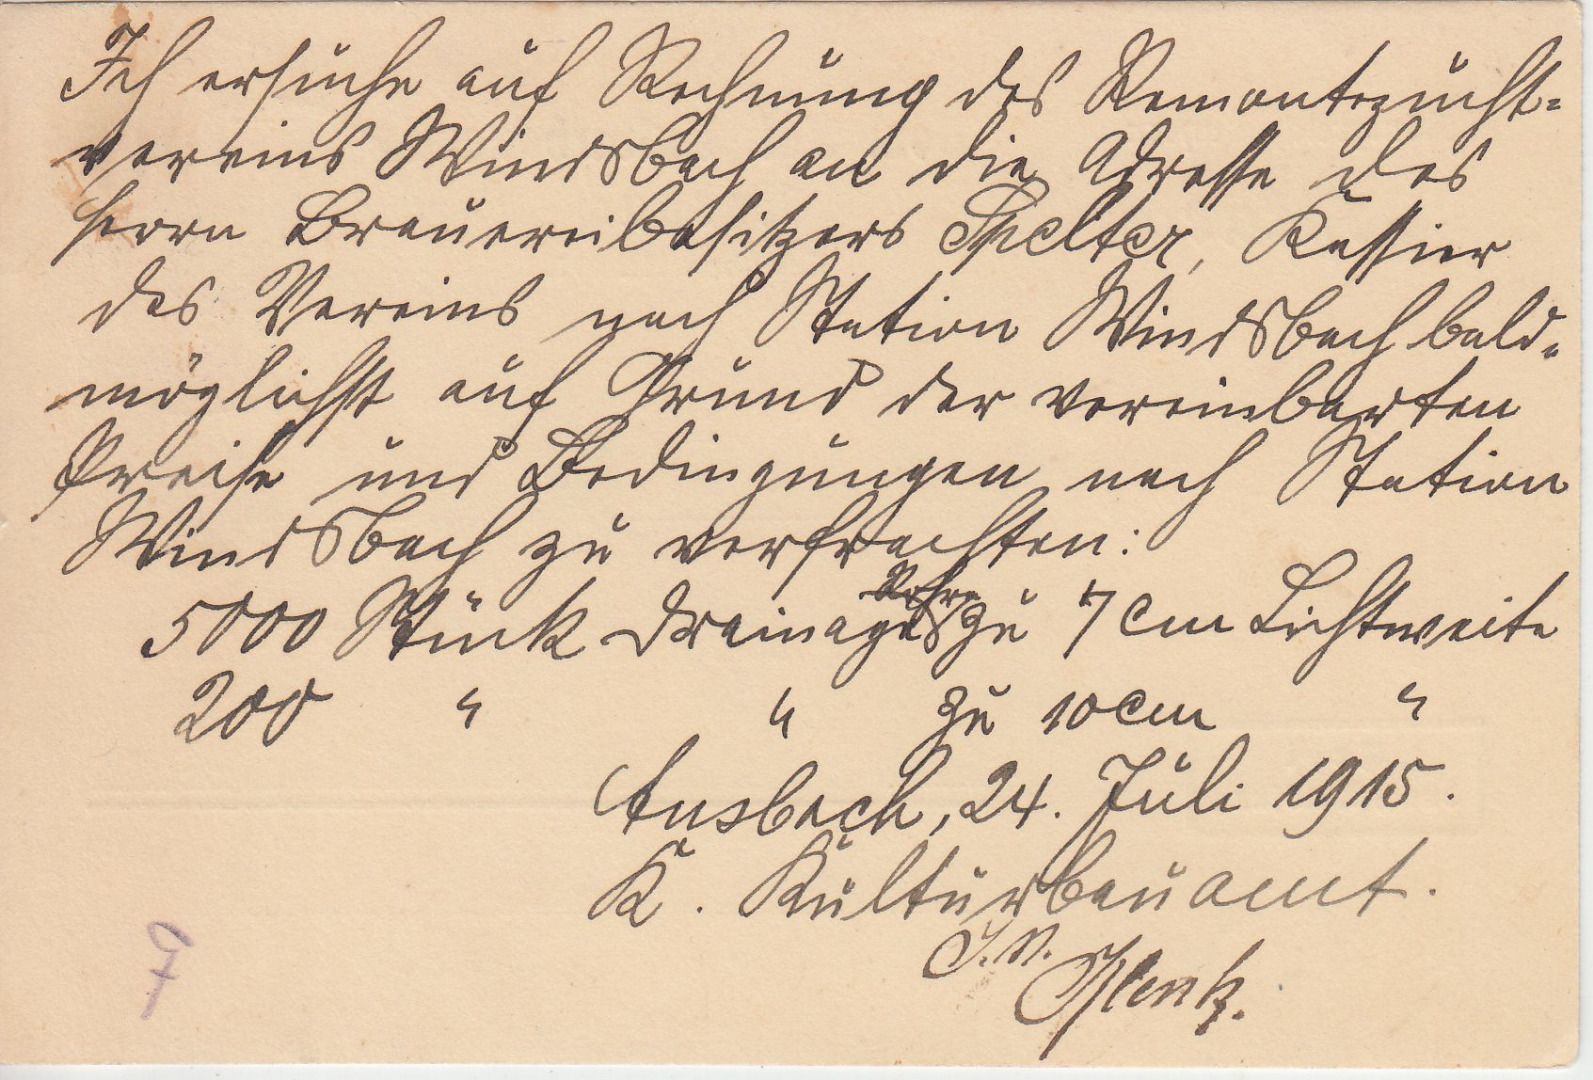 Ich ersuche auf Rechnung des Remontezucht-
vereins Windsbach an die Adresse des
Herrn Brauereibesitzers Spelter, Kassier
des Vereins nach Station Windsbach bald-
möglichst auf Grund der vereinbarten
Preise und Bedingungen nach Station
Windsbach zu verfrachten:
Rohre
5000 Stück Drainage zu 7 cm Lichtweite
200 " " zu 10 cm "
Ansbach, 24. Juli 1915.
K. Kulturbauamt.
I.V.